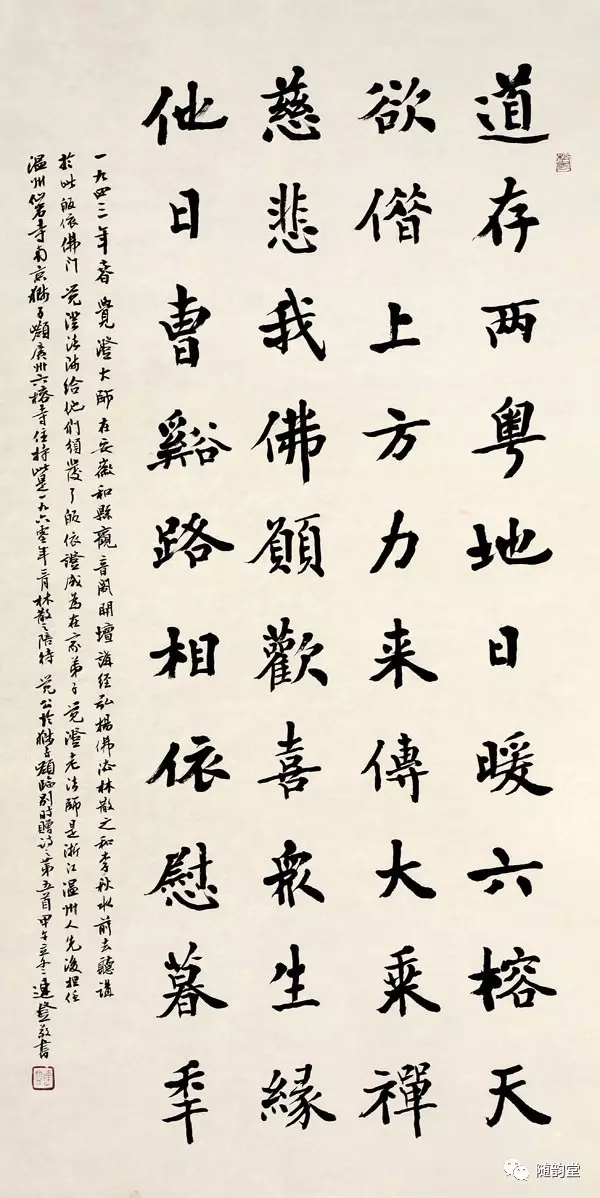 道存两粤地日暖六榕天
欲偕上方力来傳大乘禪
慈悲我佛願歡喜衆生緣
他日曹谿路相依慰暮秊
一九四三年春覺澄大師在安徽和縣觀音阁開壇講经弘揚佛法林散之和李秋水前去聽講
於此皈依佛门覚澄法師给他們頒發了皈依證成為在家弟子覚澄老法師是浙江温州人先後担任
温州仙岩寺南京獅子嶺廣州六榕寺住持此是一九六零年二月林散之陪侍覚公於獅子嶺臨别時贈诗之第五首甲午立冬建登敬書
随韵堂